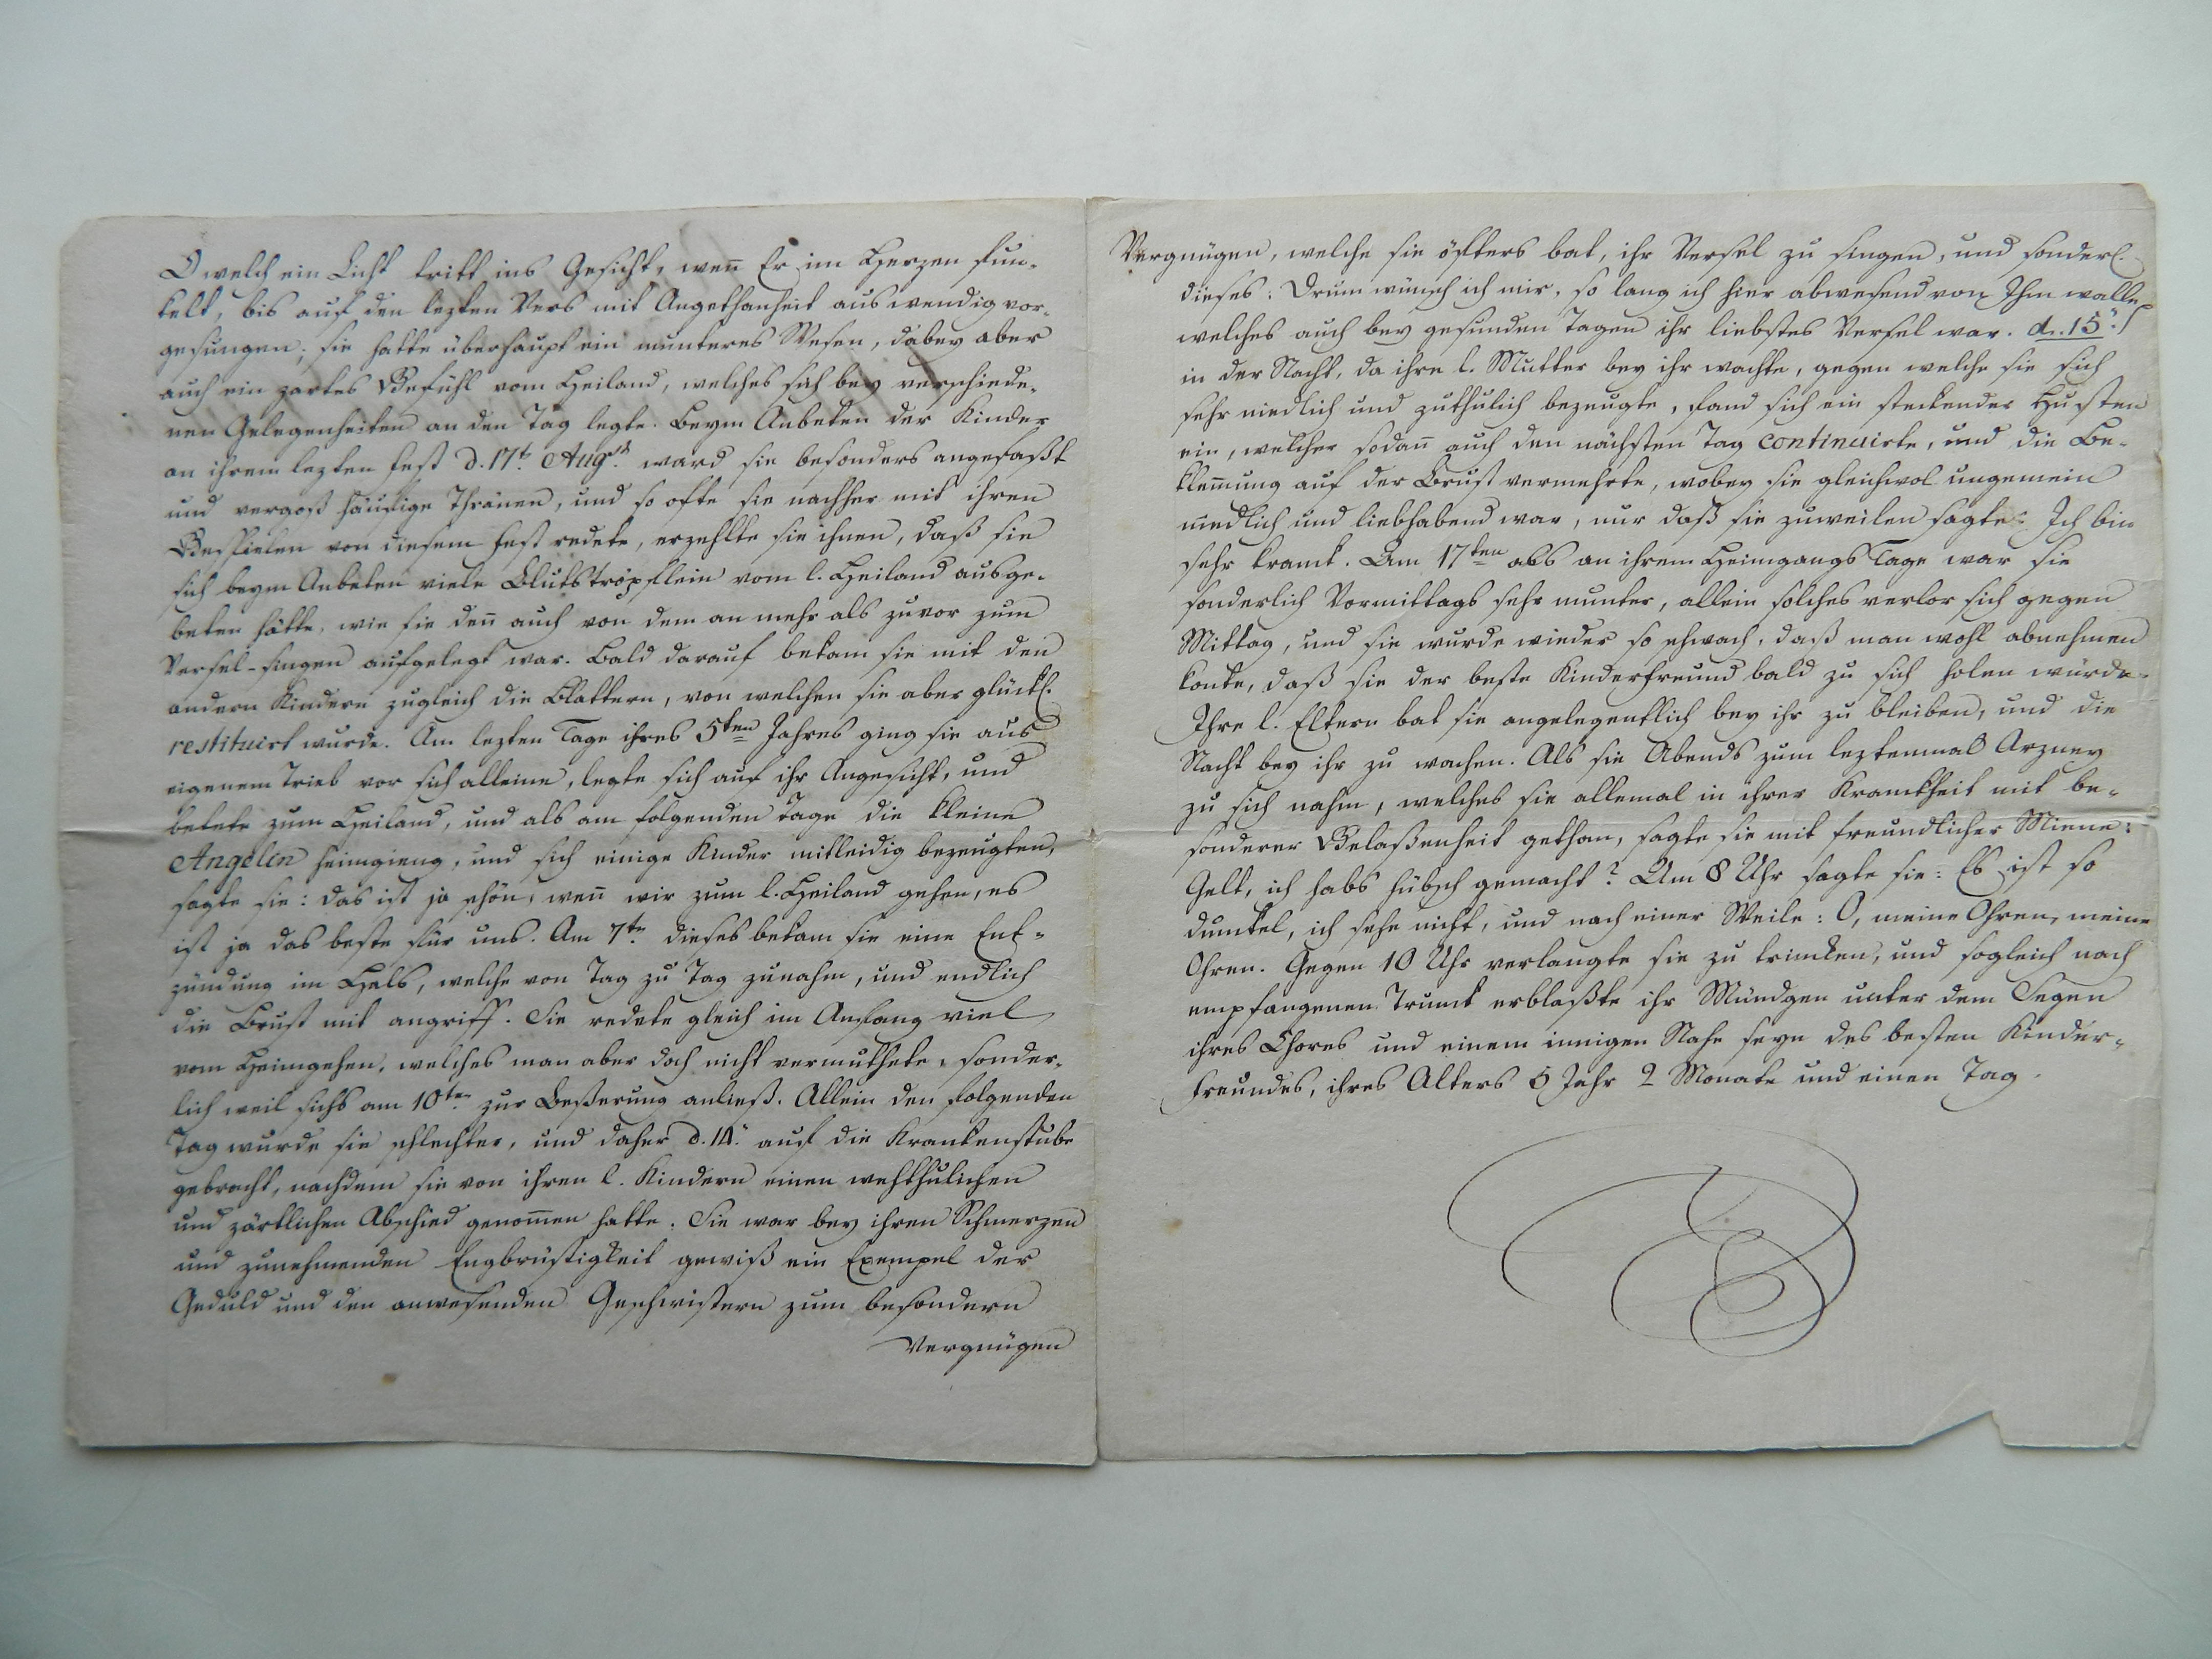 O welch ein Licht tritt ins Gesicht, weñ Er im Herzen fun-
kelt, bis auf den lezten Vers mit Angethanheit auswendig vor-
gesungen; sie hatte überhaupt ein munteres Wesen, dabey aber
auch ein zartes Gefühl vom Heiland, welches sich bey verschiede-
nen Gelegenheiten an den Tag legte. Beym Anbeten der Kinder
an ihrem lezten Fest d. 17t. Augst. ward sie besonders angefaßt
und vergoß häufige Thränen, und so ofte sie nachher mit ihren
Gespielen von diesem Fest redete, erzehlte sie ihnen, daß sie
sich beym Anbeten viele Blutströpflein vom l. Heiland ausge-
beten hätte, wie sie deñ auch von dem an mehr als zuvor zum
Versel-singen aufgelegt war. Bald darauf bekam sie mit den
andern Kindern zugleich die Blattern, von welchen sie aber glückl.
restituirt wurde. Am lezten Tage ihres 5ten Jahres ging sie aus
eigenem Trieb vor sich alleine, legte sich auf ihr Angesicht, und
betete zum Heiland, und als am folgenden Tage die kleine
Angelin heimgieng, und sich einige Kinder mitleidig bezeugten,
sagte sie: das ist ja schön, weñ wir zum l. Heiland gehen, es
ist ja das beste für uns. Am 7tn. dieses bekam sie eine Ent-
zündung im Hals, welche von Tag zu Tag zunahm, und endlich
die Brust mit angriff. Sie redete gleich im Anfang viel
vom Heimgehen, welches man aber doch nicht vermuthete, sonder-
lich weil sichs am 10ten. zur Beßerung anließ. Allein den folgenden
Tag wurde sie schlechter, und daher d. 14. auf die Krankenstube
gebracht, nachdem sie von ihren l. Kindern einen wehthulichen
und zärtlichen Abschied genom̃en hatte. Sie war bey ihren Schmerzen
und zunehmenden Engbrüstigkeit gewiß ein Exempel der
Geduld und den anwesenden Geschwistern zum besondern
Vergnügen
Vergnügen, welche sie öfters bat, ihr Versel zu singen, und sonderl.
dieses: Drum wünsch ich mir, so lang ich hier abwesend von Ihm walle,
welches auch bey gesunden Tagen ihr liebstes Versel war. d. 15.
in der Nacht, da ihre l. Mutter bey ihr wachte, gegen welche sie sich
sehr niedlich und zuthulich bezeugte, fand sich ein steckender Husten
ein, welcher sodañ auch den nächsten Tag continuirte, und die Be-
klem̃ung auf der Brust vermehrte, wobey sie gleichwol ungemein
niedlich und liebhabend war, nur daß sie zuweilen sagte: Ich bin
sehr kranck. Am 17ten als an ihrem Heimgangs Tage war sie
sonderlich Vormittags sehr munter, allein solches verlor sich gegen
Mittag, und sie wurde wieder so schwach, daß man wohl abnehmen
konte, daß sie der beste Kinderfreund bald zu sich holen würde.
Ihre l. Eltern bat sie angelegentlich bey ihr zu bleiben, und die
Nacht bey ihr zu wachen. Als sie Abends zum leztenmal Arzney
zu sich nahm, welches sie allemal in ihrer Kranckheit mit be-
sonderer Gelaßenheit gethan, sagte sie mit freundlicher Miene:
Gelt, ich habs hübsch gemacht? Um 8 Uhr sagte sie: Es ist so
dunckel, ich sehe nicht, und nach einer Weile: O, meine Ohren, meine
Ohren. Gegen 10 Uhr verlangte sie zu trincken, und sogleich nach
empfangenen Trunck erblaßte ihr Mündgen unter dem Segen
ihres Chores und einem innigen Nahe seyn des besten Kinder-
freundes, ihres Alters 5 Jahr 2 Monate und einen Tag.